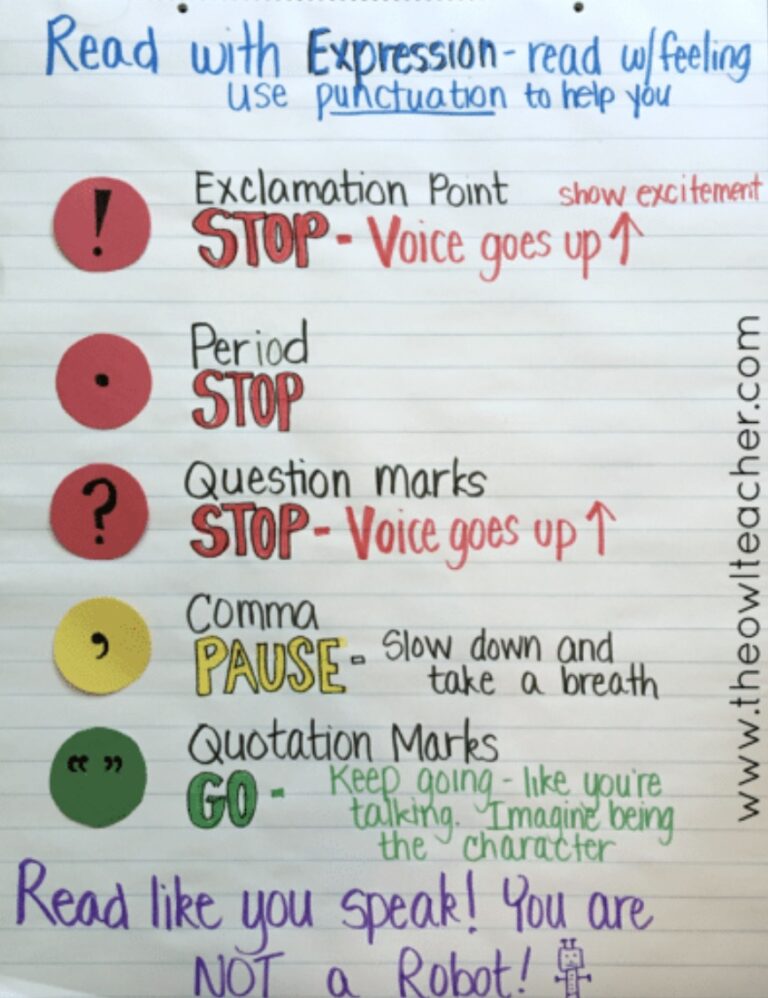 Read with Expression - read w/feeling
use punctuation to help you
!
Exclamation Point show excitement
STOP - Voice goes up ↑
.
Period
STOP
?
Question marks
STOP - Voice goes up ↑
,
Comma
PAUSE - Slow down and
take a breath
“ ”
Quotation Marks
GO - Keep going - like you're
talking. Imagine being
the character
Read like you speak! You are
NOT a Robot!
www.theowlteacher.com